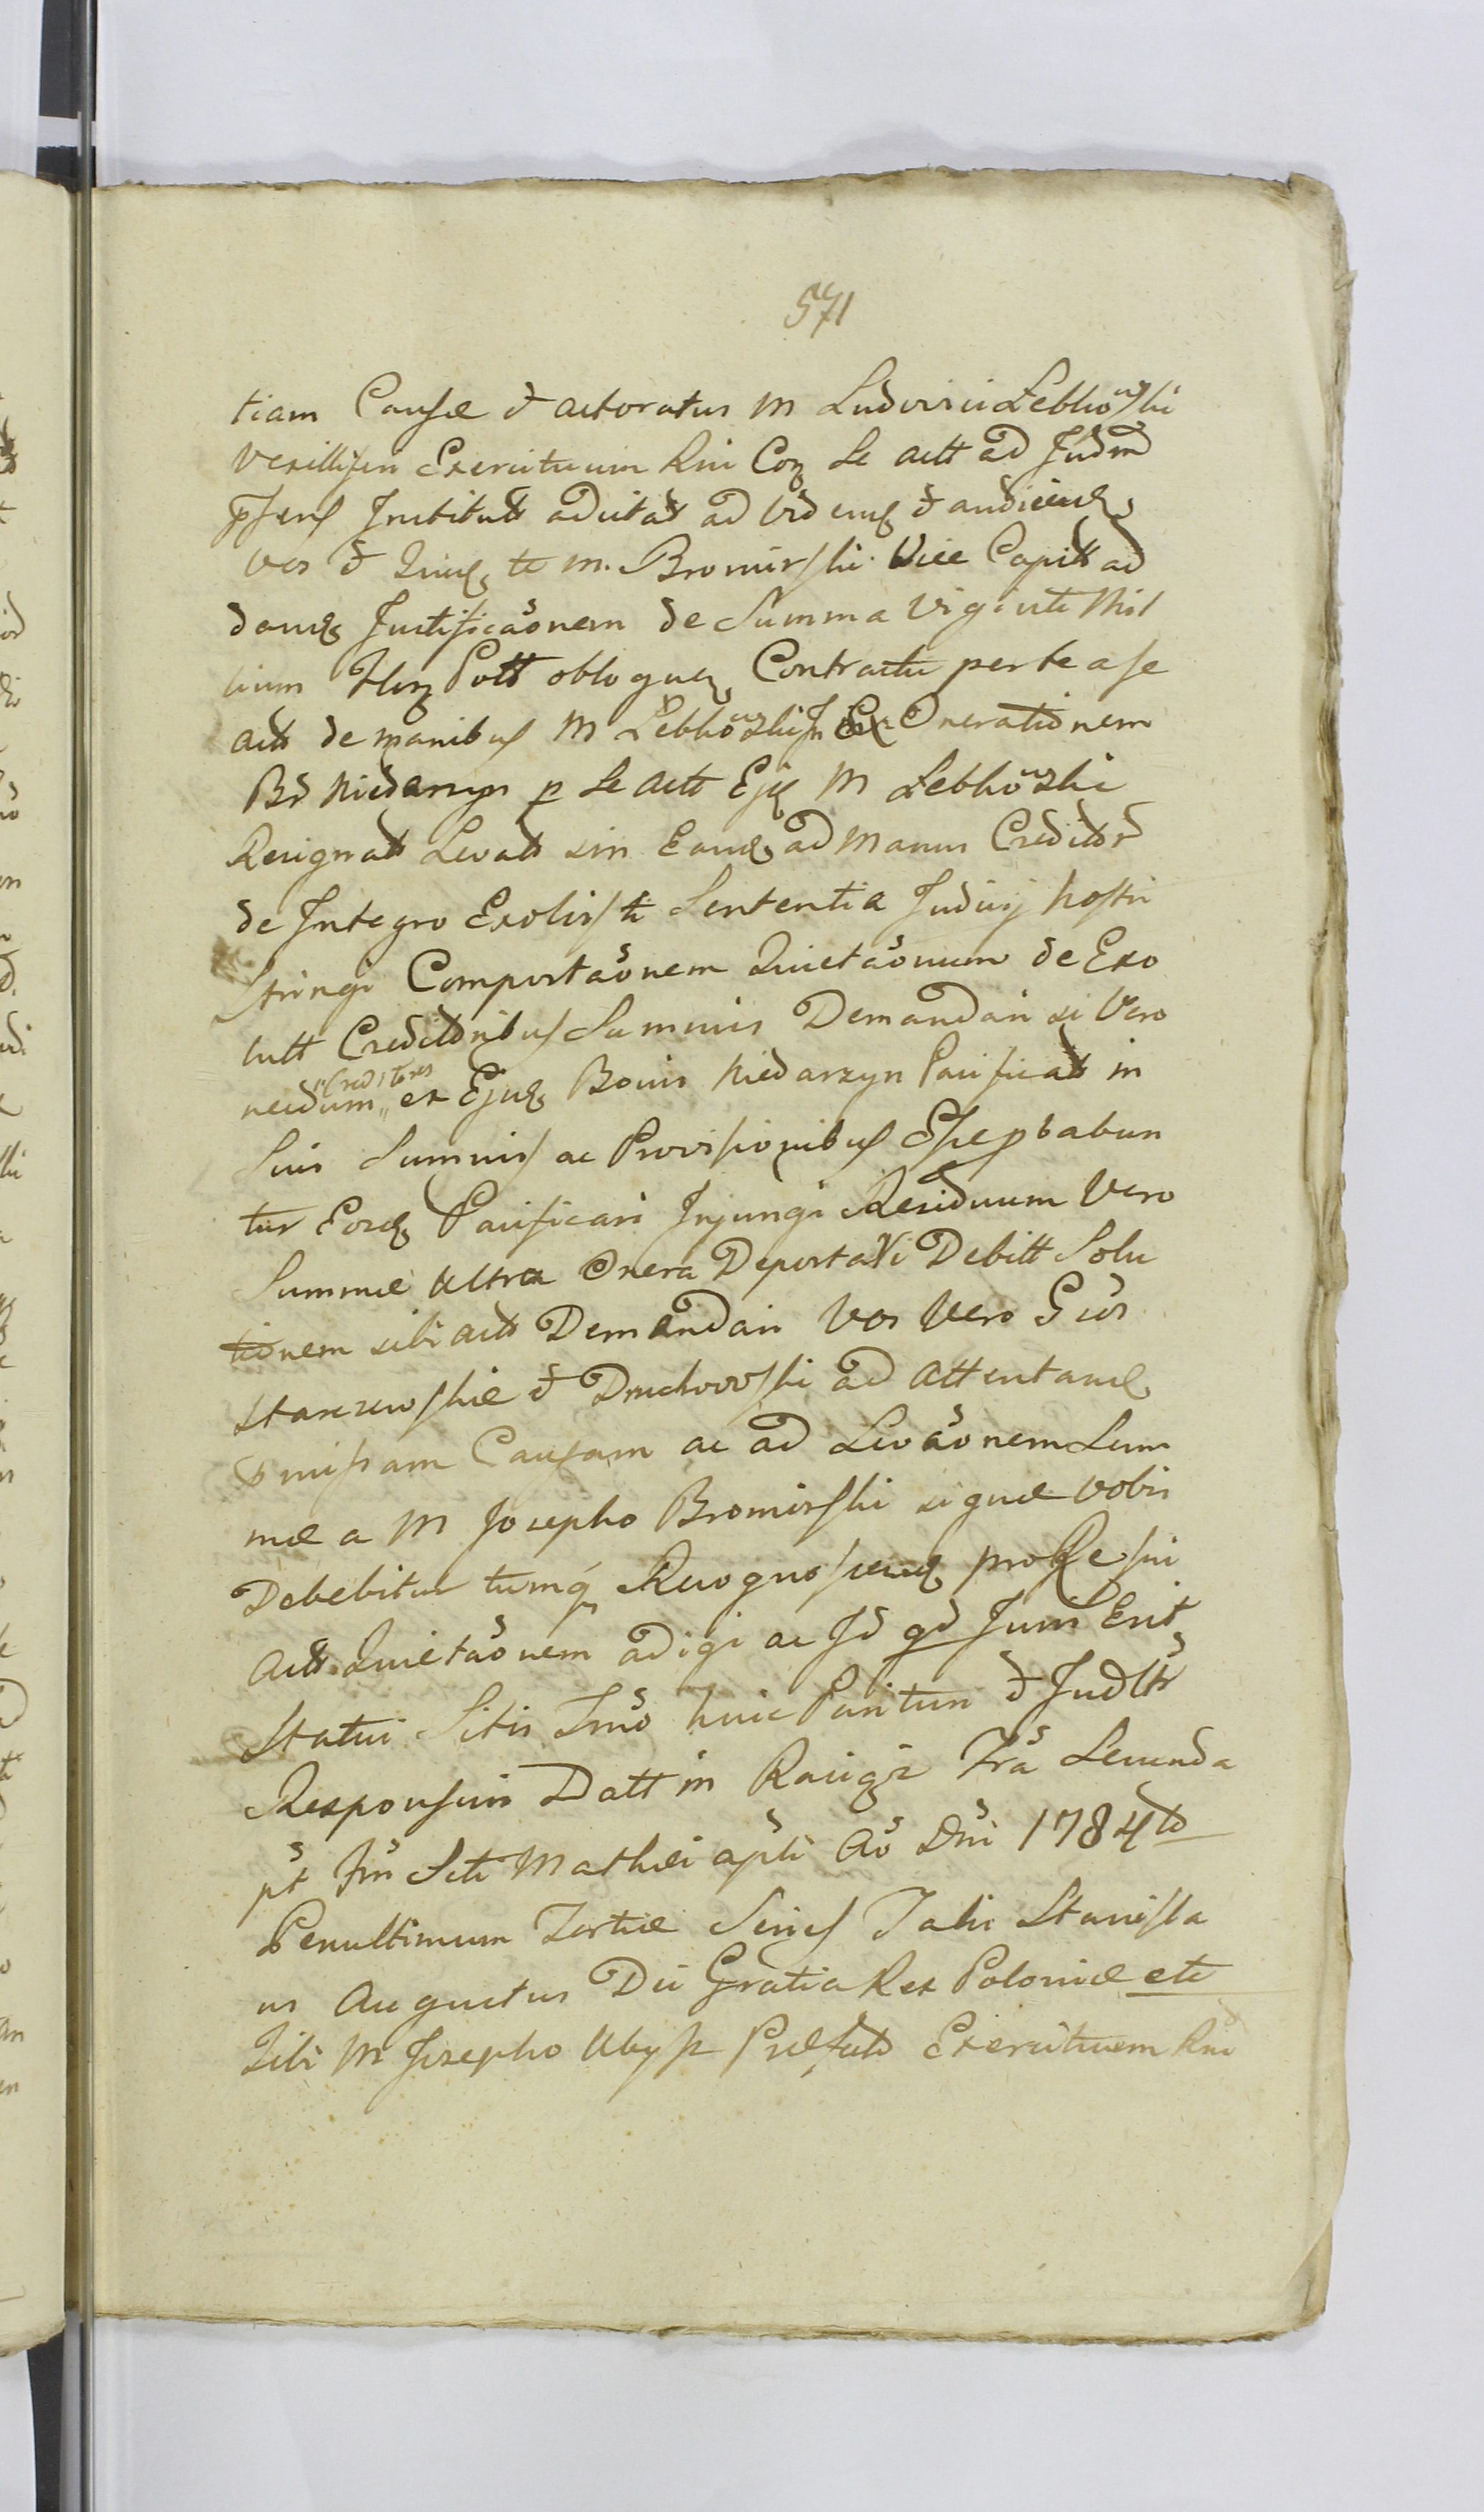 571
tiam Causæ et actoratus M Ludovici Lebkowski
Vexilliferi Exercituum Rni Coq se actt ad Judm
pſens Institutt adcitatt ad videndq et audiendq
vos et Quidq te M. Bromirski Vice Capitt ad
dandq Justificãonem de Summa Viginti Mil
lium flnq Poll obloquenq Contractu per te a se
actt de manibus M Lebkowski In Ex Onerationem
Br Niedarzyn p se actt Ejq M Lebkowski
Resignatt Levatt sin Eandq ad Manus Creditor
de Integro Exolvisti Sententia Judicij Nostri
Stringi Comportãonem Quietãonum de Exo
lutt Creditoribus Summis Demandari si Vero
necdum "Creditores" ex Ejusdq Bonis Niedarzyn Pacificatt in
Suis Summis ac Provisionibus Esse pbabun
tur Eosdq Pacificari Injungi Residuum Vero
Summæ ultra Onera Deportari Debitt Solu
tionem sibi actt Demandari Vos Vero Gsos
Starzewskie et Druchowski ad attentandq
pmissam Causam ac ad Levãonem Sum
mæ a M Josepho Bromirski si quæ vobis
Debebitur tumq Recognoscendq pro se sui
actt Quietãonem adigi ac Jd qd Juris Erit
Statui Sitis Tmo huic Parituri et Judltr
Responsuri Datt in Raciąż Fra Secunda
pt fm Scti Mathæi apli Ao Dni 1784to
Penultimum Tertiæ Series Talis Stanisla
us Augustus Dei Gratia Rex Poloniæ etc
Tibi M Josepho Præfecto Exercituum Rni